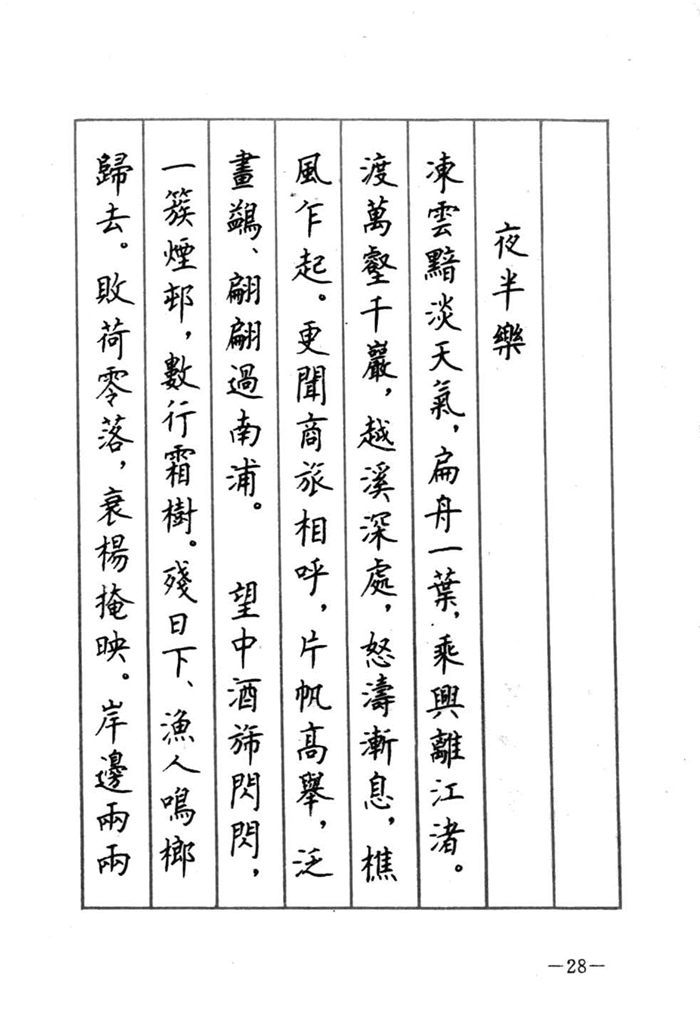 夜半樂
凍雲黯淡天氣，扁舟一葉，乘興離江渚。
渡萬壑千巖，越溪深處，怒濤漸息，樵
風乍起。更聞商旅相呼，片帆高舉，泛
畫鷁、翩翩過南浦。　望中酒旆閃閃，
一簇煙邨，數行霜樹。殘日下、漁人鳴榔
歸去。敗荷零落，衰楊掩映。岸邊兩兩
—28—